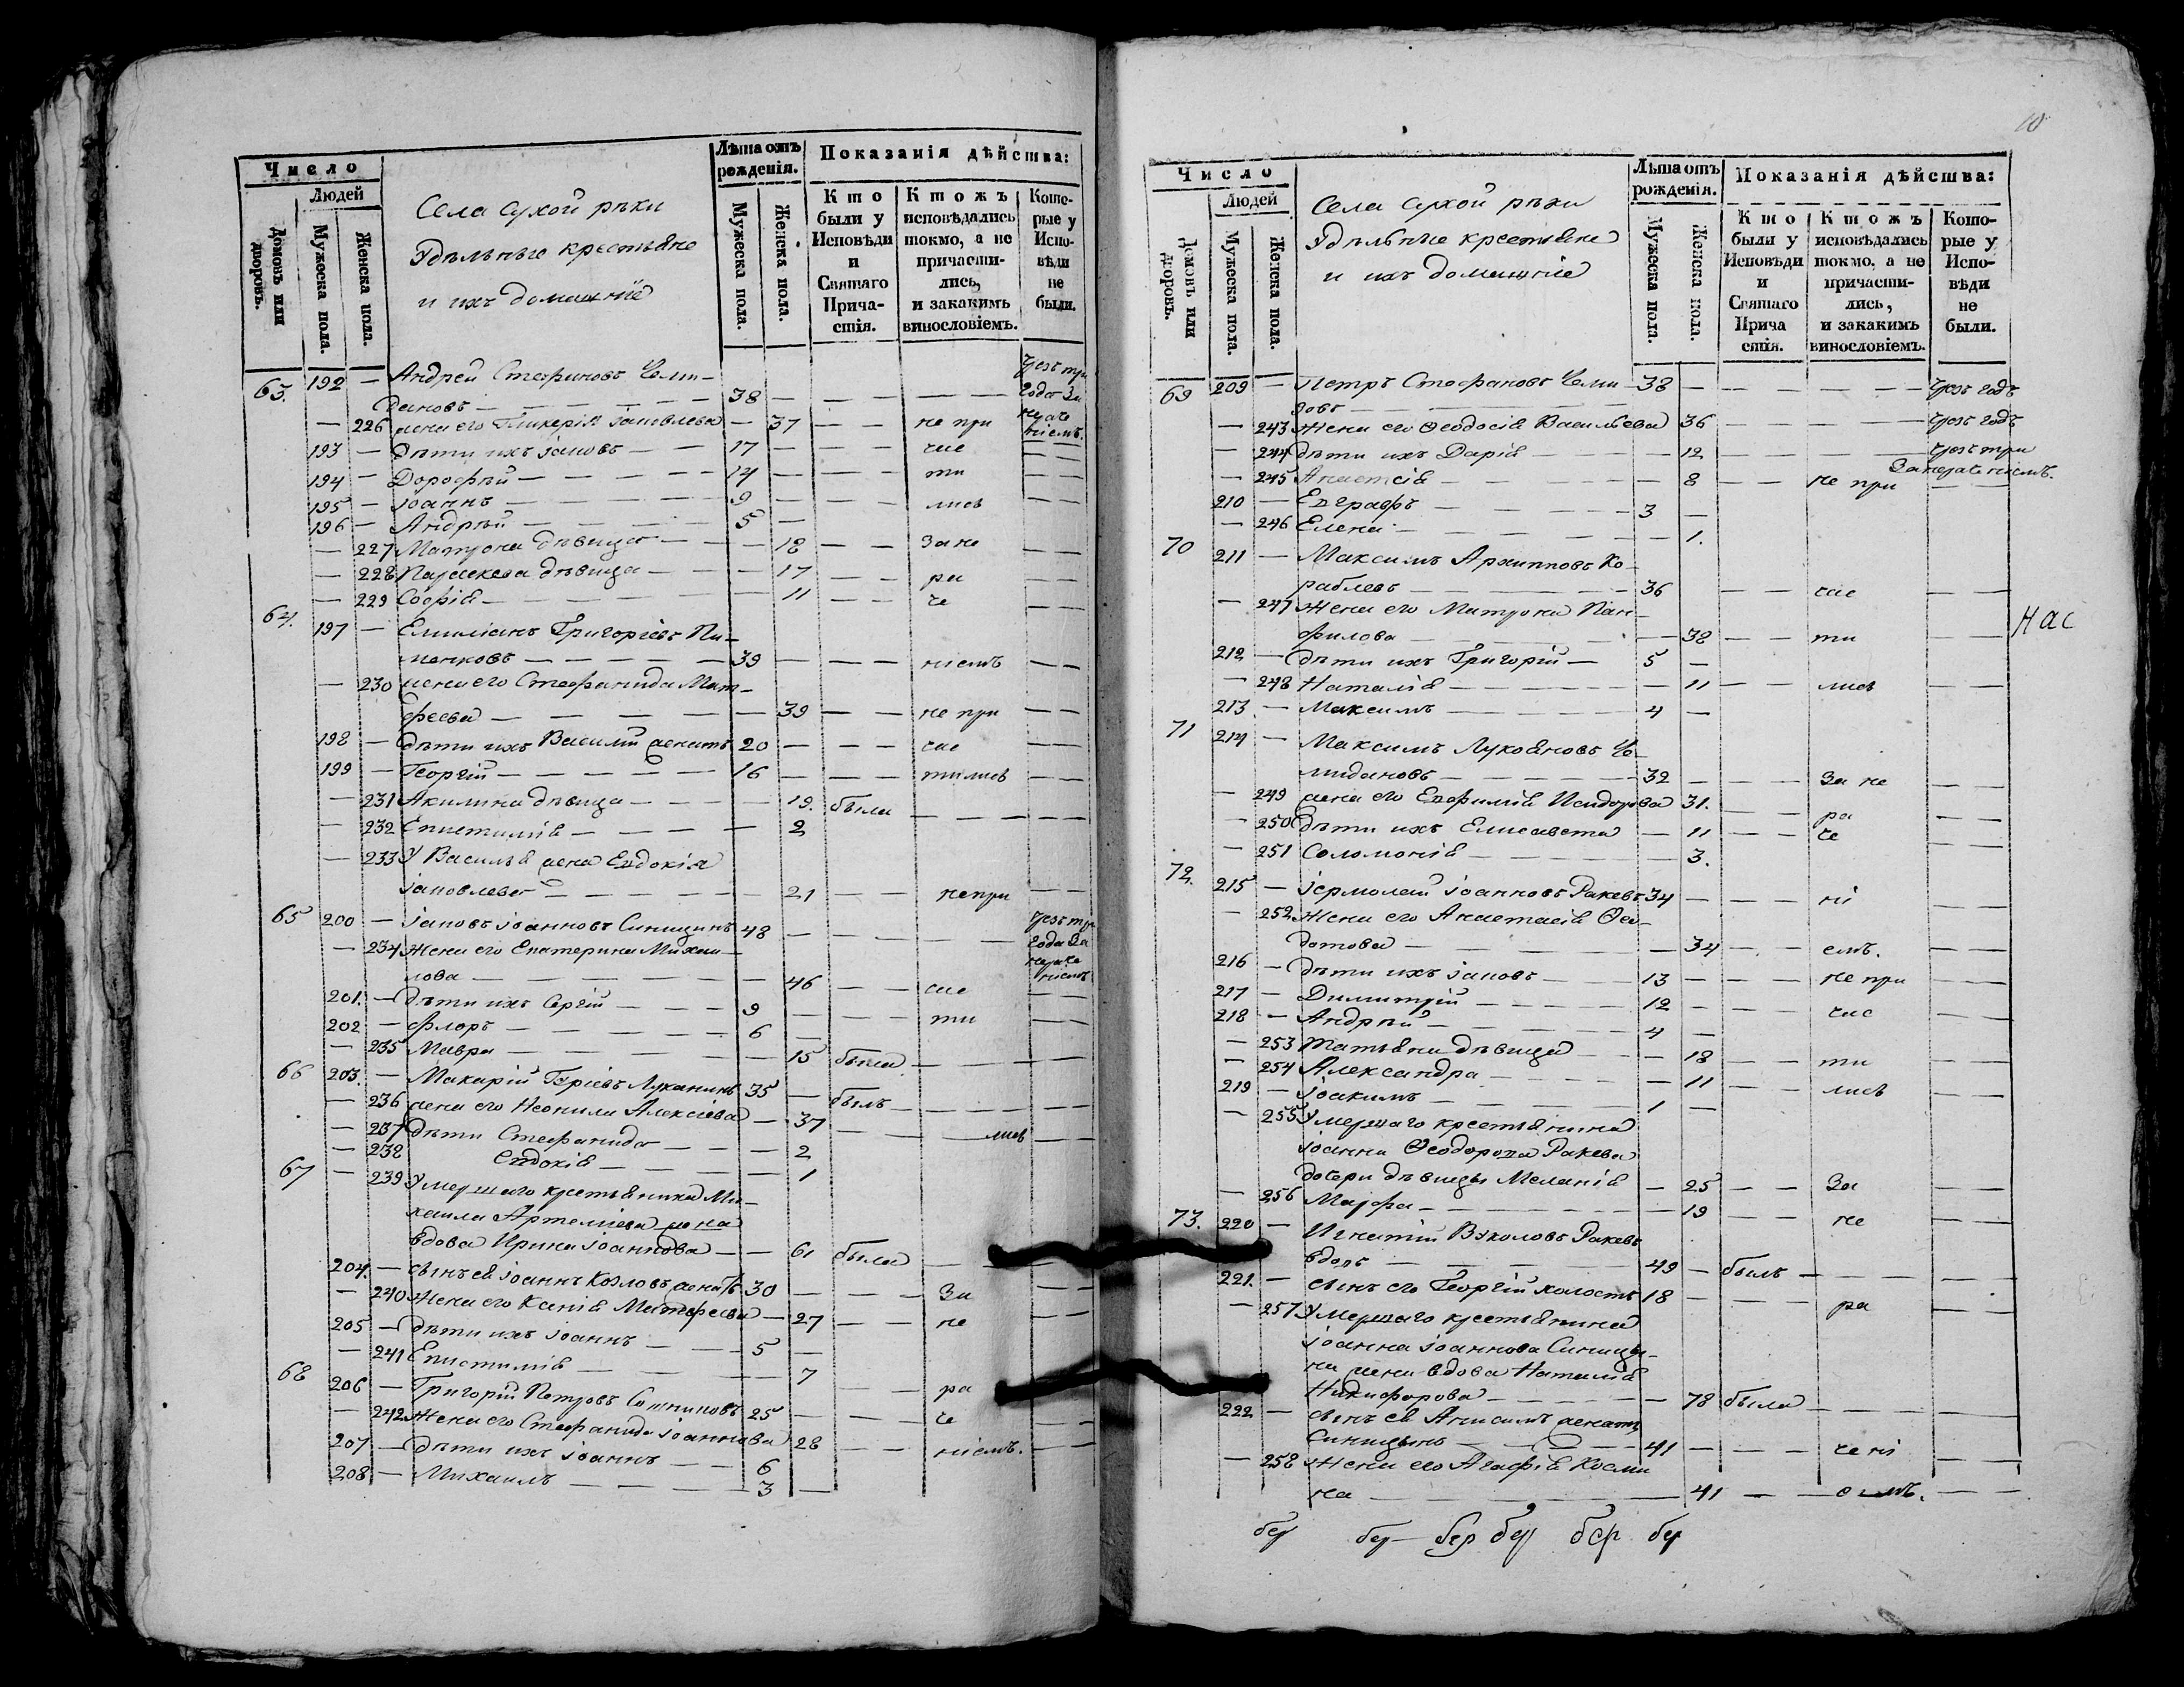 Число
Людей
Домовъ или дворовъ.
Мужеска пола.
Женска пола.
Села сухой рѣки
Удѣльные крестьяне
и ихъ домашніе
Лѣта отъ рожденія.
Мужеска пола.
Женска пола.
Показанія дѣйства:
Кто были у Исповѣди и Святаго Причастія.
Ктожъ исповѣдались токмо, а не причастились, и закакимъ винословіемъ.
Которые у Исповѣди не были.
63. 192 — Андрей Стефановъ Чеми- чрезъ три
дановъ — 38 — года за
— 226 жена его Гликерія Іаковлева — 37 — — не при нераче
193 — дѣти ихъ Іаковъ — 17 — час ніемъ.
194 — Дорофѣй — 14 — ти
195 — Іоаннъ — 9 — лись
196 — Андрѣй — 5 —
— 227 Матрона дѣвица — 18 — — За не
— 228 Параскева дѣвица — 17 — — ра
— 229 Софія — 11 — — че
64. 197 — Емиліанъ Григоріевъ Пи-
менковъ — 39 — — ніемъ — —
— 230 жена его Стефанида Мат-
феева — 39 — — не при — —
198 — дѣти ихъ Василій женатъ 20 — — час — —
199 — Георгій — 16 — — тились — —
— 231 Акилина дѣвица — 19. была — — —
— 232 Епистимія — 2
— 233 У Василья жена Евдокія
Іаковлева — 21 — — не при — —
65 200 — Іаковъ Іоанновъ Синицинъ 48 — чрезъ три
— 234 Жена его Екатерина Михаи- года за
лова — 46 — — час нераче ніемъ
201. — дѣти ихъ Сергій — 9 — — ти — —
202 — Флоръ — 6 —
— 235 Мавра — 15 была — — —
66 203. — Макарій Гѳріевъ Луканинъ 35 — былъ — — —
— 236 жена его Неонила Алексіева — 37 — — лись — —
— 237 дѣти Стефанида — 2
— 238 Евдокія — 1
67 — 239 Умершаго крестьянина Ми-
хаила Артеміева жена
вдова Ирина Іоаннова — 61 была
204. — сынъ ея Іоаннъ Козловъ женатъ 30 — — За — —
— 240 Жена его Ксенія Матфеева — 27 — — не — —
205 — дѣти ихъ Іоаннъ — 5 —
— 241 Епистимія — 7
68 206 — Григорій Петровъ Сотниковъ 25 — — ра — —
— 242 Жена его Стефанида Іоаннова 28 — — че — —
207 — дѣти ихъ Іоаннъ — 6 ніемъ. — —
208 — Михаилъ — 3 —
10
Число
Людей
Домовъ или дворовъ.
Мужеска пола.
Женска пола.
Села сухой рѣки
Удѣльные крестьяне
и ихъ домашніе
Лѣта отъ рожденія.
Мужеска пола.
Женска пола.
Показанія дѣйства:
Кто были у Исповѣди и Святаго Прича стія.
Ктожъ исповѣдались токмо, а не причастились, и закакимъ винословіемъ.
Которые у Исповѣди не были.
69 209 — Петръ Стефановъ Чеми- 38 — — — чрезъ годъ
— 243 Жена его Ѳеодосія Васильева 36 — — — чрезъ годъ
— 244 дѣти ихъ Дарія — 12 — — чрезъ три
— 245 Анастасія — 8 — — не при За нераченіемъ.
210 — Евграфъ — 3 —
— 246 Елена — 1.
70 211 — Максимъ Архипповъ Ко-
раблевъ — 36 — час — —
— 247 Жена его Матрона Пан-
филова — 38 — — ти — —
нас
212 — дѣти ихъ Григорій — 5 —
— 248 Наталія — 11 — — лись — —
213. — Максимъ — 4 —
71 214 — Максимъ Лукояновъ Че-
мидановъ — 32 — — — За не — —
— 249 жена его Евфимія Исидорова 31. — — ра — —
— 250 дѣти ихъ Елисавета — 11 — — че — —
— 251 Соломонія — 3.
72. 215 — Іермолай Іоанновъ Ракевъ 34 — — — ні — —
— 252 Жена его Анастасія Ѳео-
дотова — 34 — — емъ. — —
216 — дѣти ихъ Іаковъ — 13 — — — не при — —
217 — Димитрій — 12 — — — час — —
218 — Андрѣй — 4 —
— 253 Татьяна дѣвица — 18 — — ти — —
— 254 Александра — 11 — — лись — —
219 — Іоакимъ — 1 —
— 255 Умершаго крестьянина
Іоанна Ѳеодорова Ракева
дочери дѣвицы Меланія — 25 — — За — —
— 256 Марфа — 19 — — не — —
73. 220 — Игнатій Вуколовъ Ракевъ
вдовъ — 49 — былъ — — —
221. — сынъ его Георгій холостъ 18 — — — ра — —
— 257 Умершаго крестьянина
Іоанна Іоаннова Синицы-
на жена вдова Наталія
Никифорова — 78 была — — —
222 — сынъ ея Анисимъ женатъ
Синицынъ — 41 — — — чені — —
— 258 Жена его Агафія Косми
на — 41 — — емъ. — —